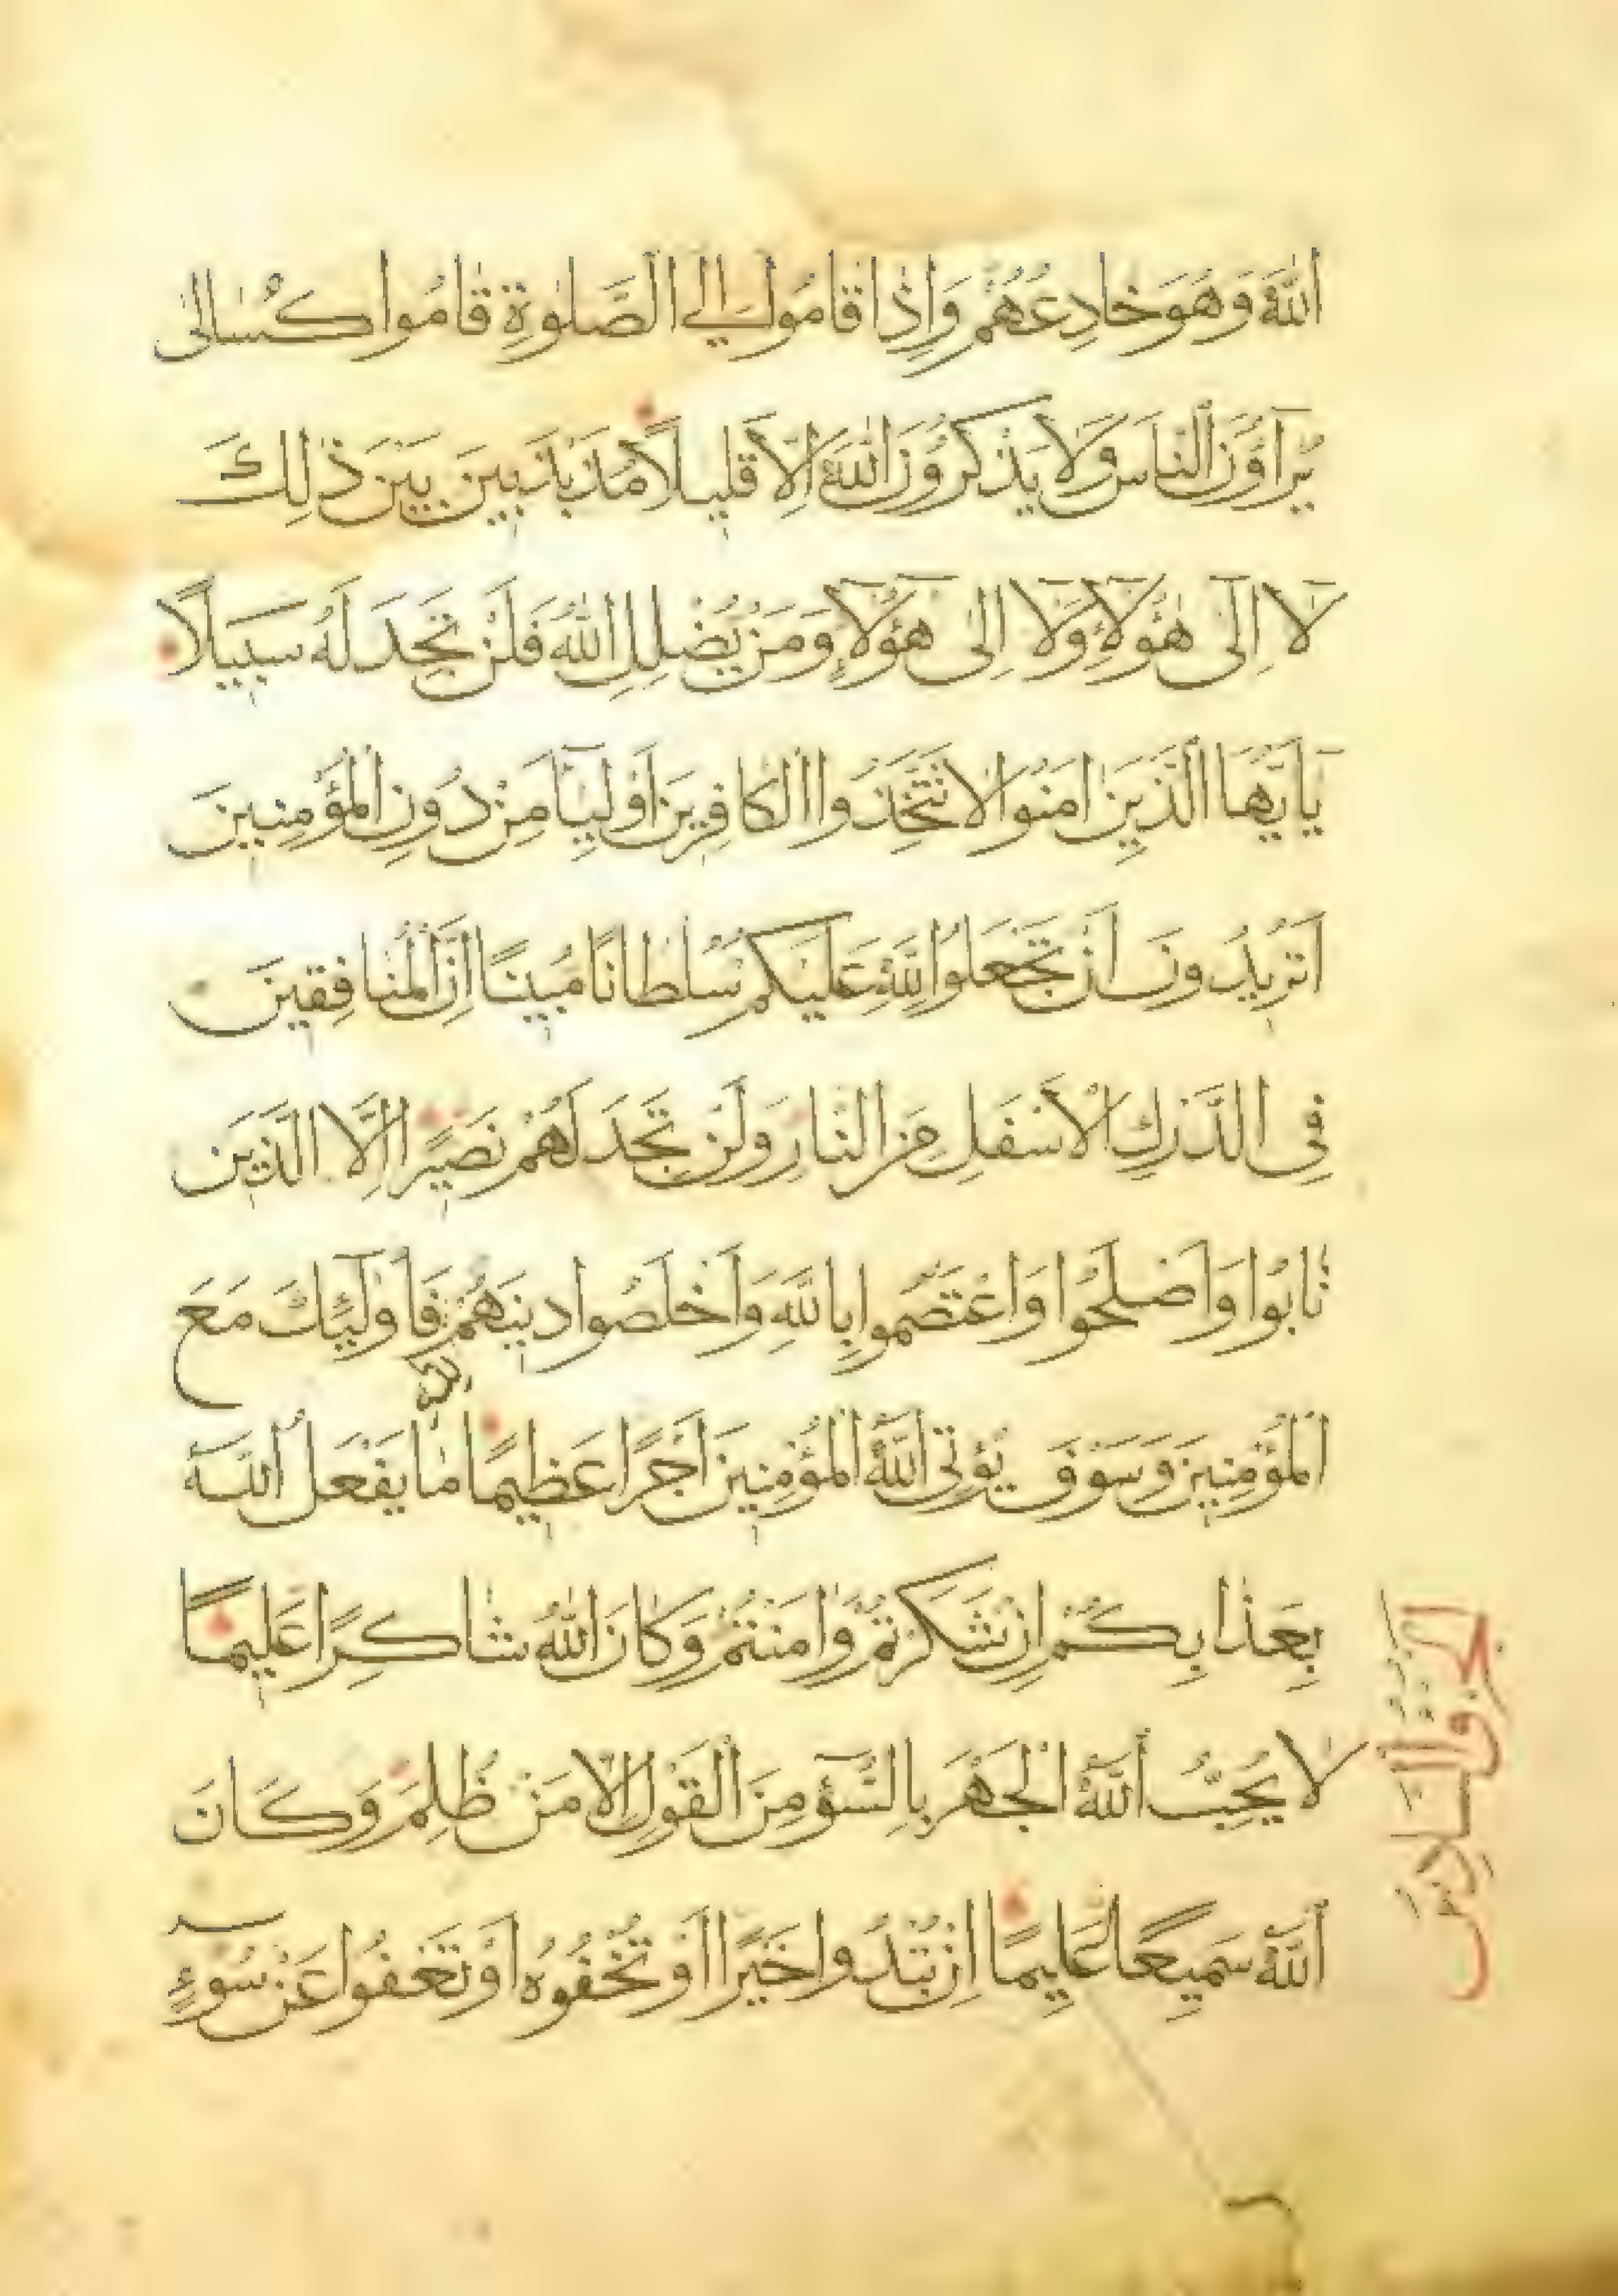 اللهَ وَهُوَ خَادِعُهُمْ وَاِذَا قَامُوا اِلَى الصَّلٰوةِ قَامُوا كُسَالٰى
يُرَآؤُنَ النَّاسَ وَلَا يَذْكُرُونَ اللهَ اِلَّا قَلِيلًا مُذَبْذَبِينَ بَيْنَ ذٰلِكَ
لَآ اِلٰى هٰؤُلَآءِ وَلَآ اِلٰى هٰؤُلَآءِ وَمَنْ يُضْلِلِ اللهُ فَلَنْ تَجِدَ لَهُ سَبِيلًا
يَآ اَيُّهَا الَّذِينَ اٰمَنُوا لَا تَتَّخِذُوا الْكَافِرِينَ اَوْلِيَآءَ مِنْ دُونِ الْمُؤْمِنِينَ
اَتُرِيدُونَ اَنْ تَجْعَلُوا لِلّٰهِ عَلَيْكُمْ سُلْطَانًا مُبِينًا اِنَّ الْمُنَافِقِينَ
فِى الدَّرْكِ الْاَسْفَلِ مِنَ النَّارِ وَلَنْ تَجِدَ لَهُمْ نَصِيرًا اِلَّا الَّذِينَ
تَابُوا وَاَصْلَحُوا وَاعْتَصَمُوا بِاللّٰهِ وَاَخْلَصُوا دِينَهُمْ لِلّٰهِ فَاُولٰٓئِكَ مَعَ
الْمُؤْمِنِينَ وَسَوْفَ يُؤْتِى اللّٰهُ الْمُؤْمِنِينَ اَجْرًا عَظِيمًا مَا يَفْعَلُ اللّٰهُ
بِعَذَابِكُمْ اِنْ شَكَرْتُمْ وَاٰمَنْتُمْ وَكَانَ اللّٰهُ شَاكِرًا عَلِيمًا
لَا يُحِبُّ اللّٰهُ الْجَهْرَ بِالسُّوٓءِ مِنَ الْقَوْلِ اِلَّا مَنْ ظُلِمَ وَكَانَ
اللّٰهُ سَمِيعًا عَلِيمًا اِنْ تُبْدُوا خَيْرًا اَوْ تُخْفُوهُ اَوْ تَعْفُوا عَنْ سُوٓءٍ
الجزؤ السادس